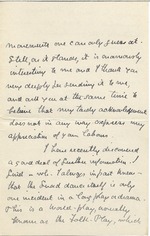 one can only guess at.
Still, as it stands, it is enormously
interesting to me and I thank you
very deeply for sending it to me,
and ask you at the same time to
believe that my tardy acknowledgement
does not in any way express my
appreciation of your labour.
I have recently discovered
a good deal of further information. I
find
that the Sword dance itself is only
one incident in a long play or drama.
This is a world-play, usually
known as the Folk-Play, which